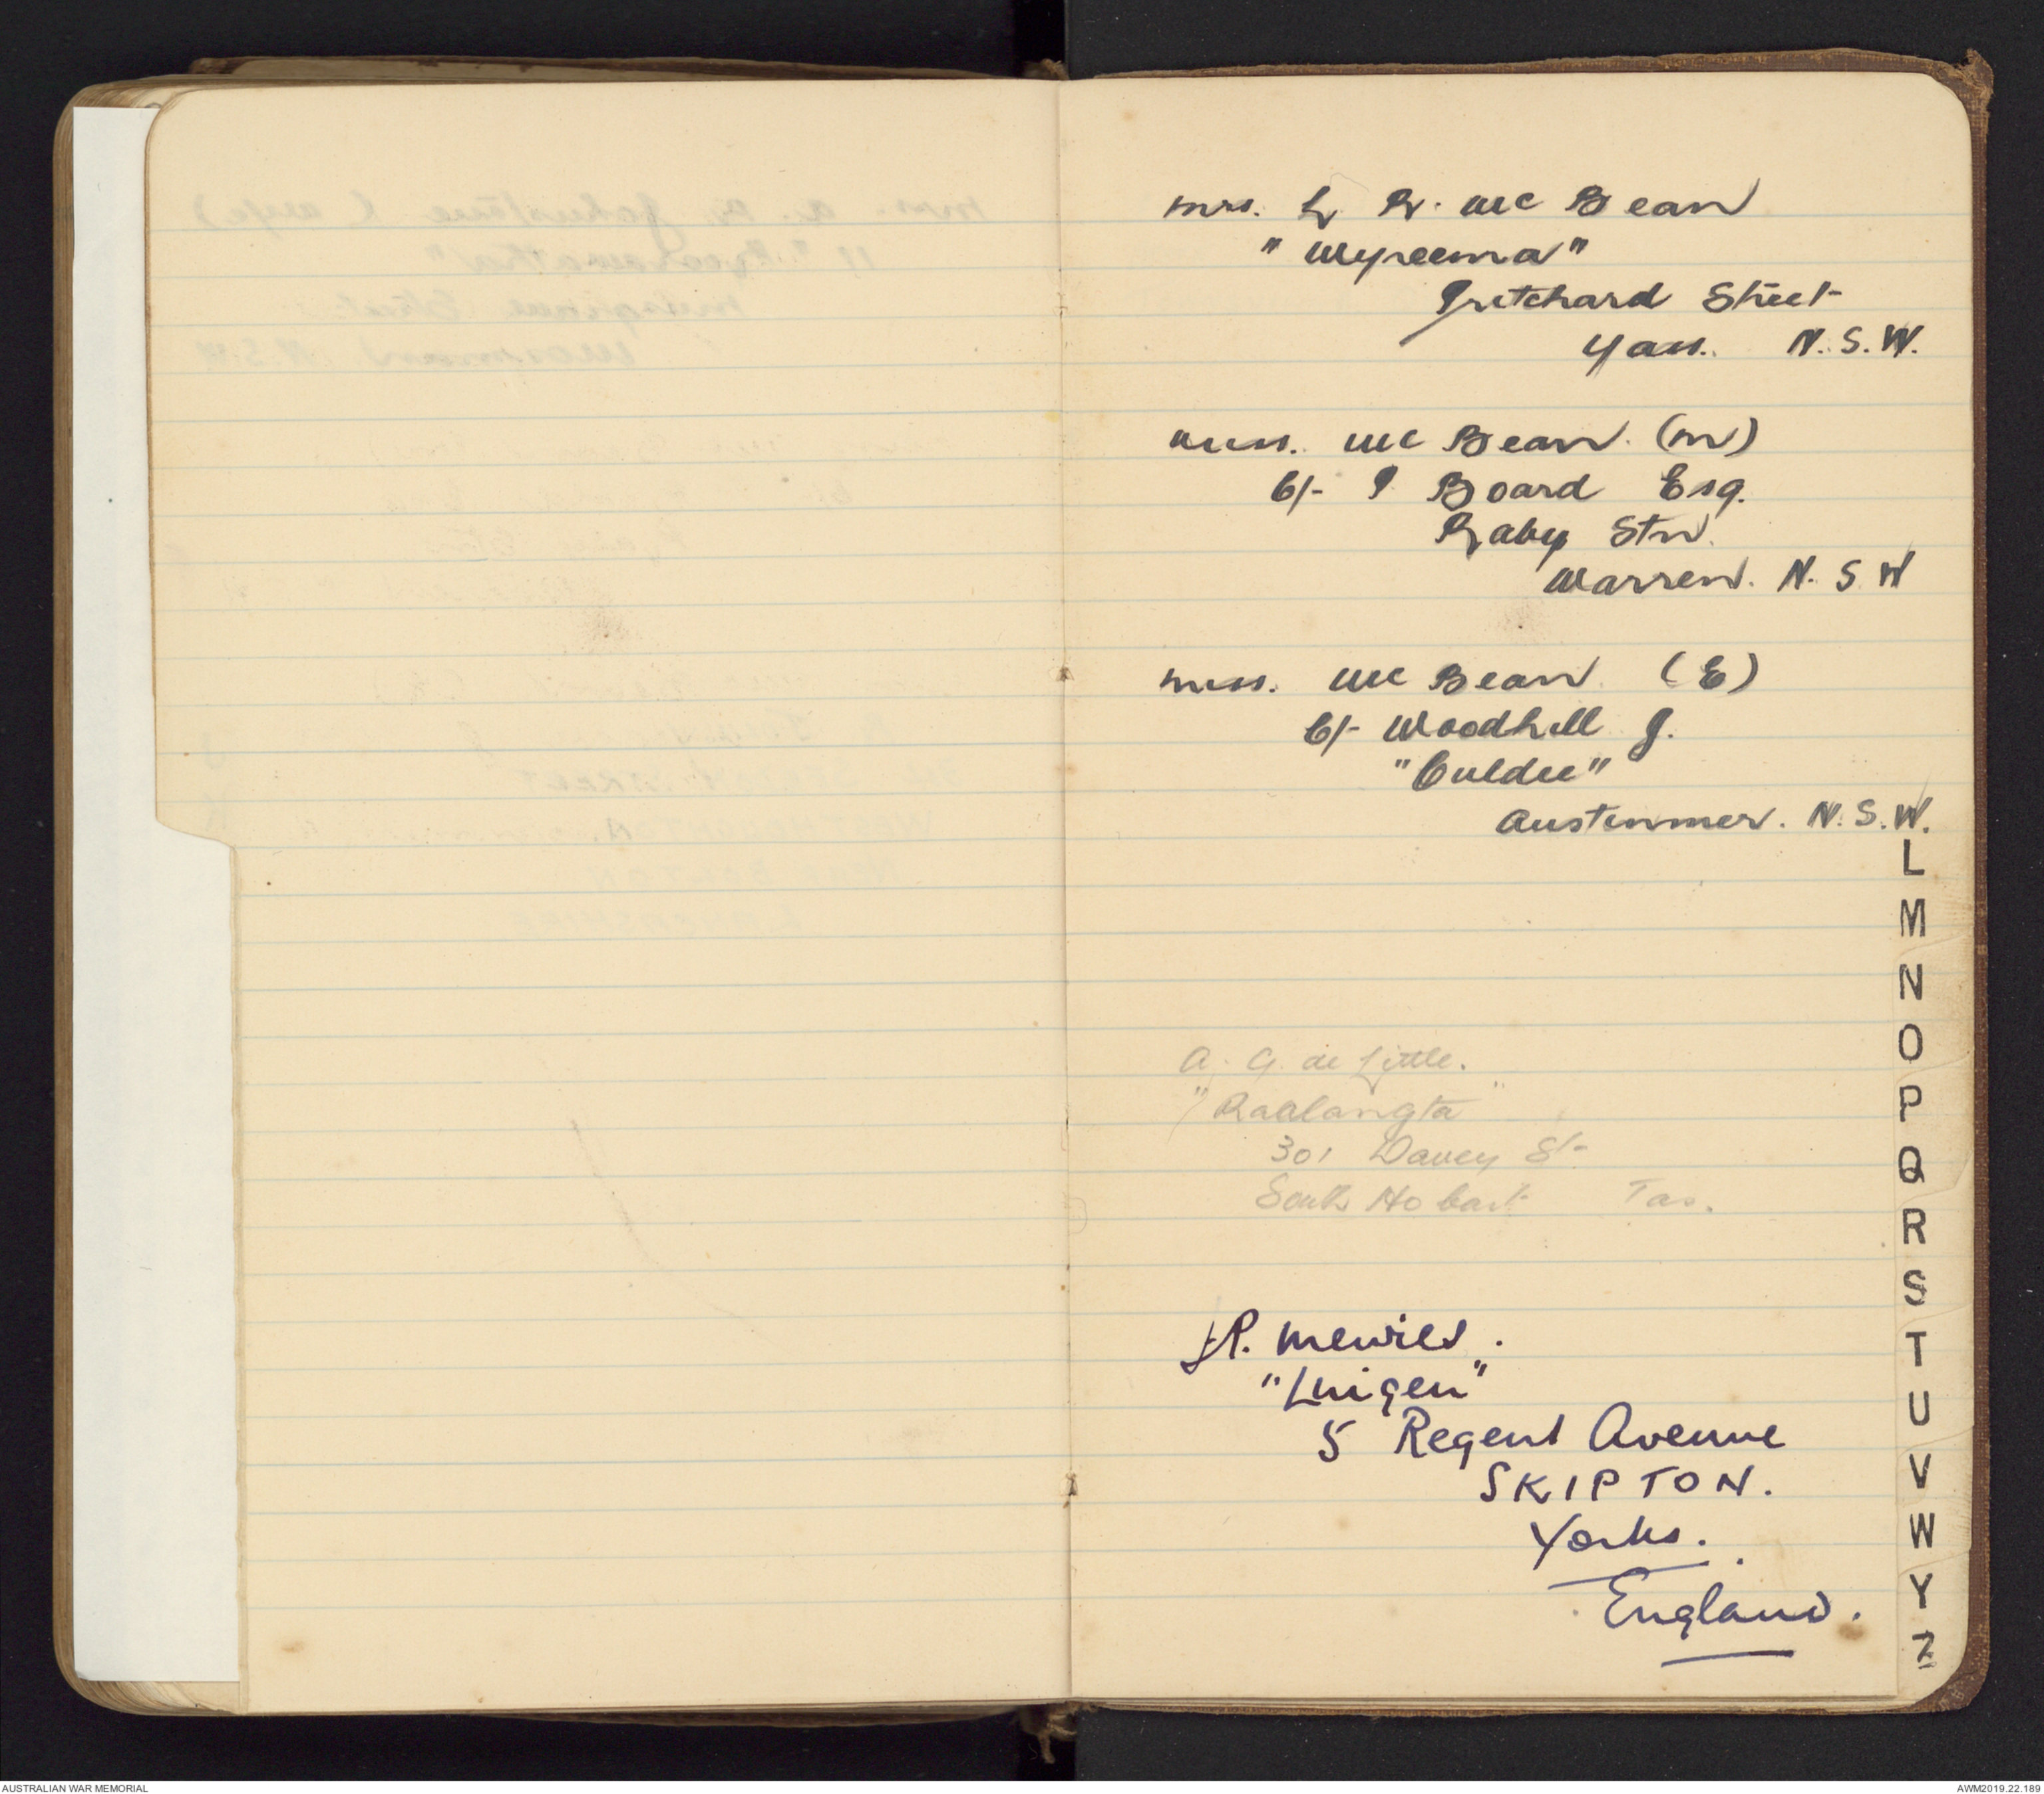 Mrs. L R. McBean
"Wyreema"
Pritchard Street
Yass. N.S.W.
Miss. McBean. (M)
C/- P Board Esq.
Raby Stn.
Warren. N.S.W
Miss. McBean (E)
C/- Woodhill J.
"Culdee"
Austinmer. N.S.W.
A. G. de Little.
"Raalangta"
301 Davey St
South Hobart Tas.
R. Menries.
5 Regent Avenue
SKIPTON.
Yorks.
England.
L
M
N
O
P
Q
R
S
T
U
V
W
Y
Z
AUSTRALIAN WAR MEMORIAL
AWM2019.22.189